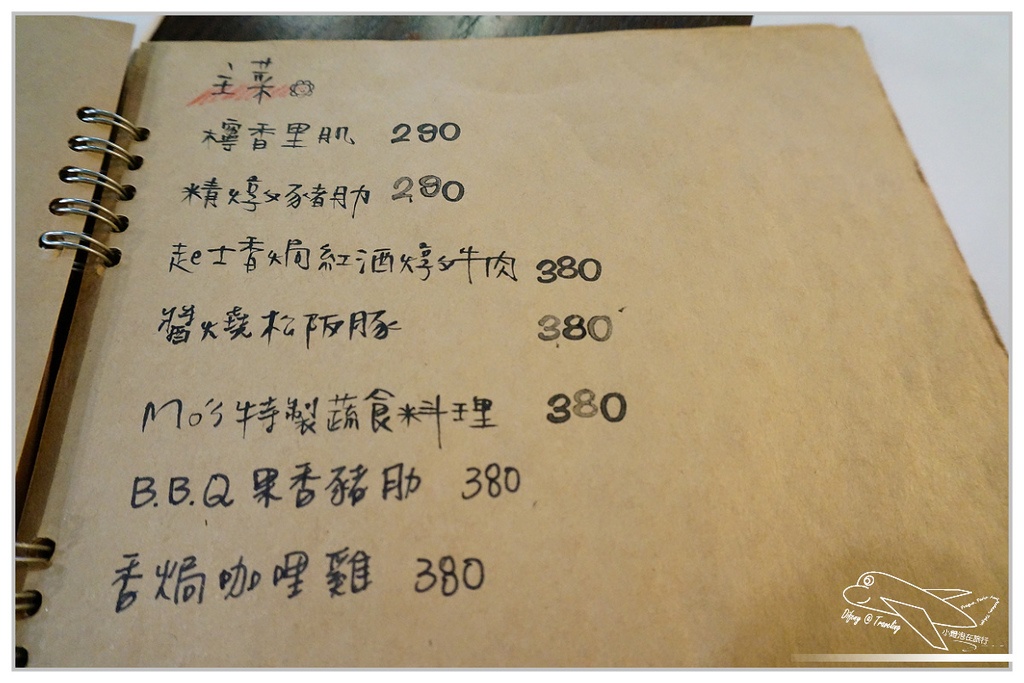 主菜
檸香里肌 290
精燉豬肋 290
起士香焗紅酒燉牛肉 380
醬燒松阪豚 380
Mo's特製蔬食料理 380
B.B.Q 果香豬肋 380
香焗咖哩雞 380
Difeny @ Traveling
小燈泡在旅行